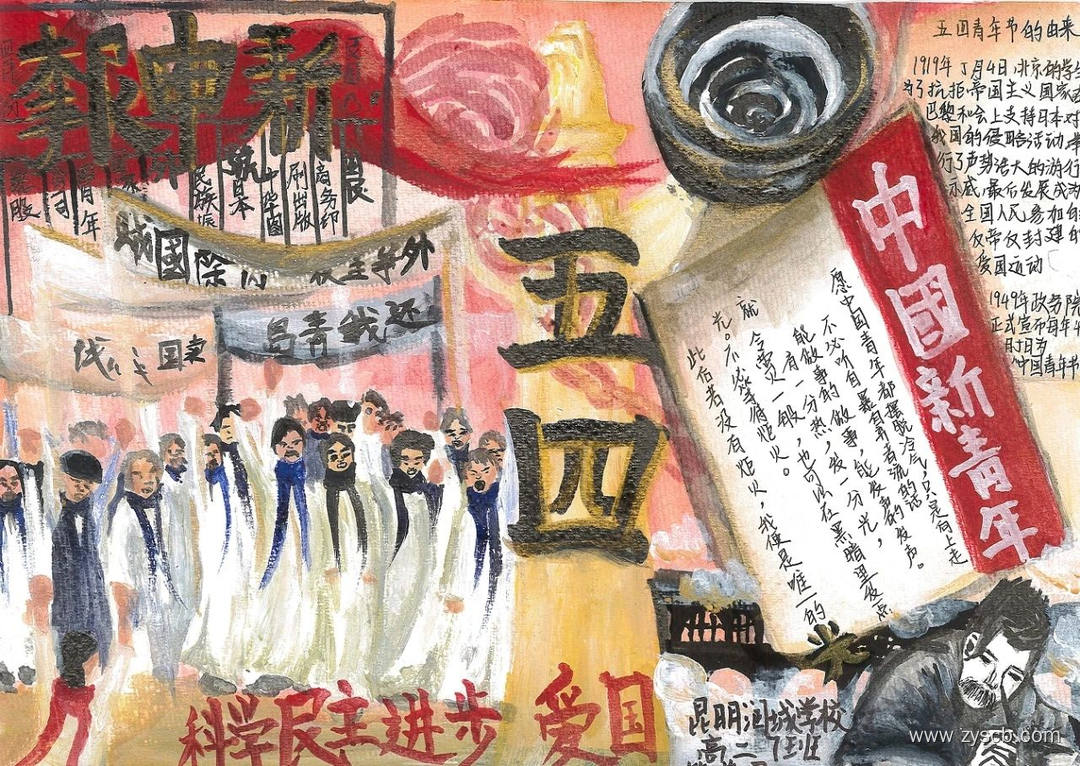 新申報
商务印
刷出版
青年
外争主权内除國贼
还我青島
五四
中國新青年
愿中国青年都摆脱冷气,只是向上走
不必听自暴自弃者流的话
能做事的做事,能发声的发声。
有一分热,发一分光,
就令萤火一般,也可以在黑暗里发点
光。不必等候炬火。
此后若没有炬火,我便是唯一的
光
五四青年节的由来
1919年5月4日,北京的学生
为了抗拒帝国主义国家在
巴黎和会上支持日本对
我国的侵略活动,举
行了声势浩大的游行
示威,最后发展成为
全国人民参加的
反帝反封建的
爱国运动
1949年政务院
正式宣布每年4
月5日为
中国青年节
科学民主进步 爱国
昆明润城学校
高二 7班
www.zyscb.com